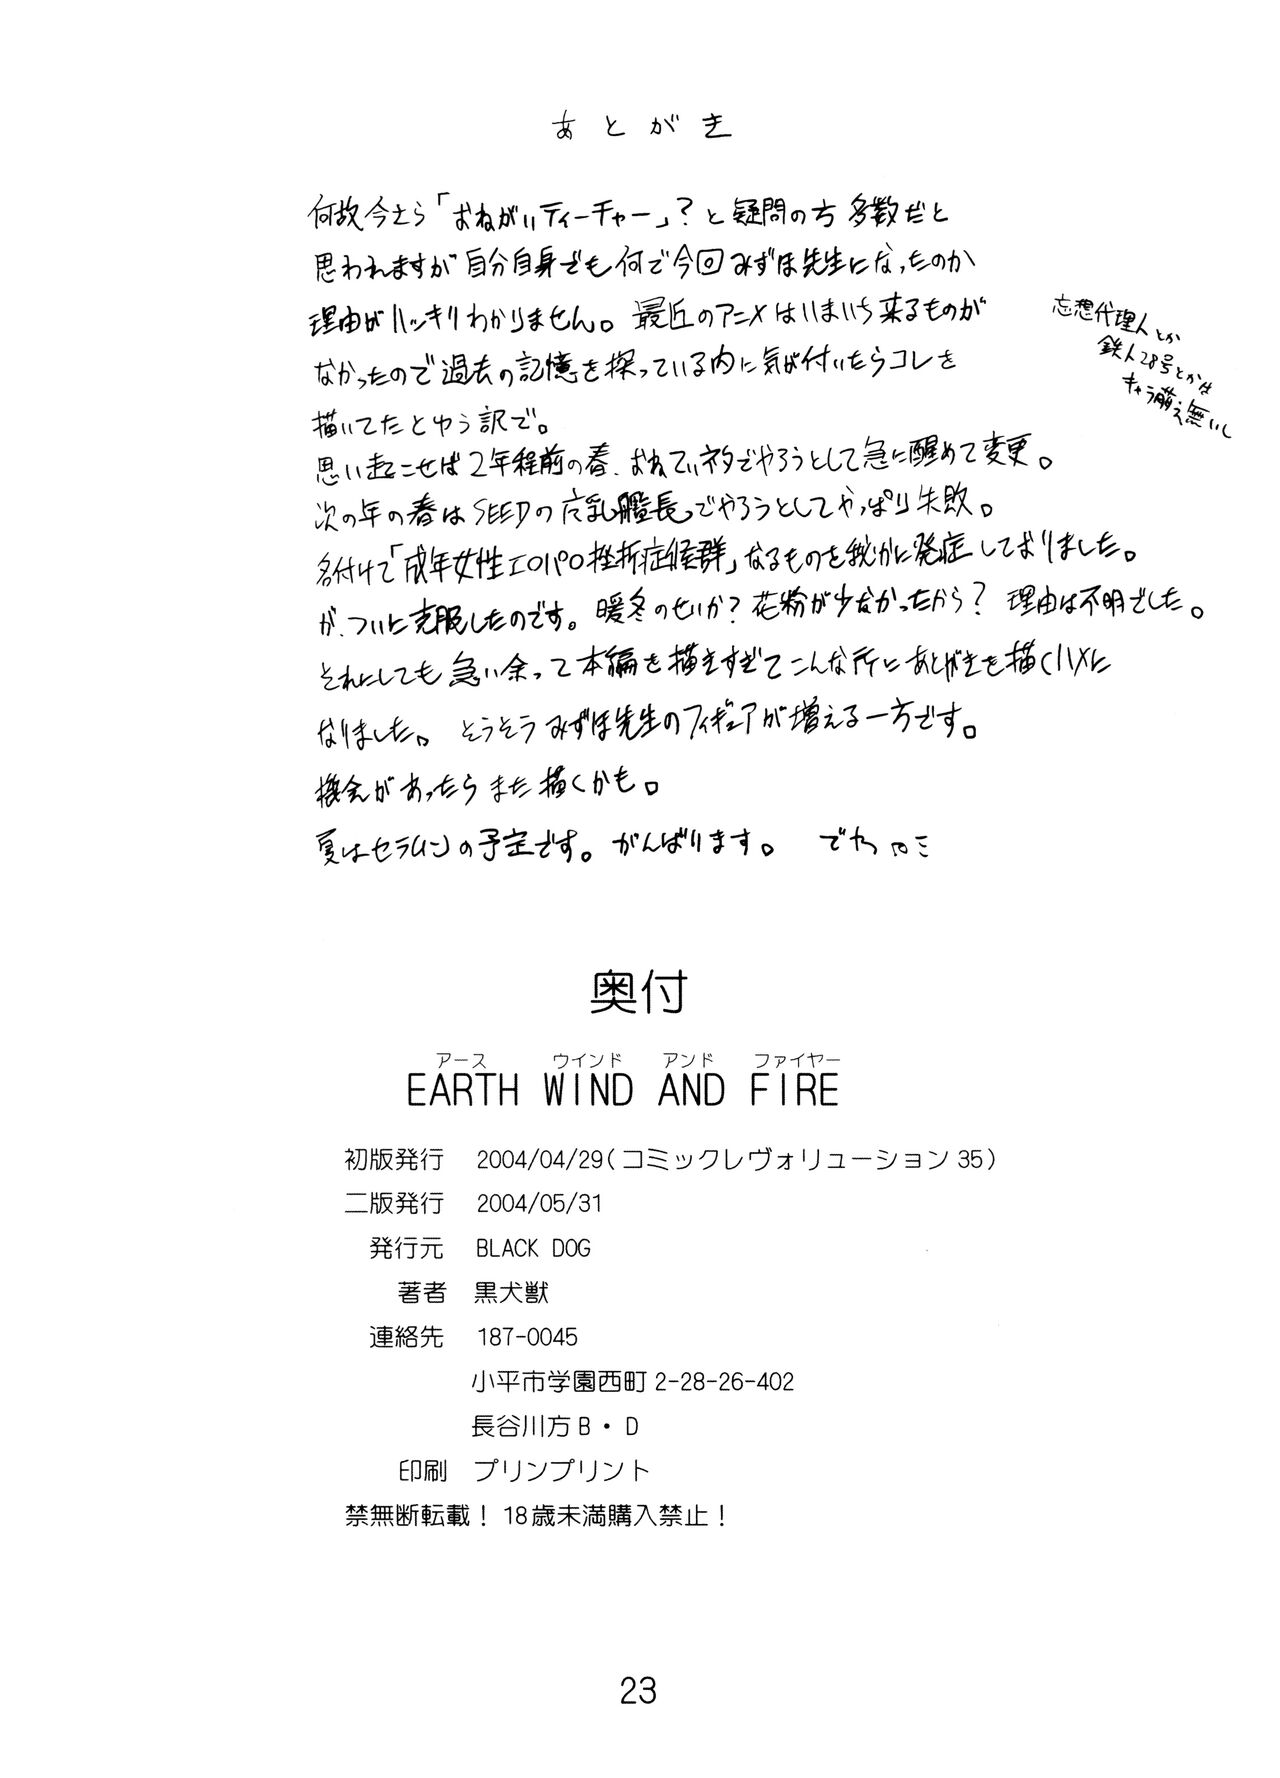 あとがき
何故今さら「おねがいティーチャー」?と疑問の方多数だと
思われますが自分自身でも何で今回みずほ先生になったのか
理由がハッキリわかりません。最近のアニメはいまいち来るものが
なかったので過去の記憶を探っている内に気が付いたらコレを
描いてたとゆう訳で。
妄想代理人とか
鉄人28号とかは
キャラ萌え無いし
思い起こせば2年程前の春、おねてぃネタでやろうとして急に醒めて変更。
次の年の春はSEEDの巨乳艦長でやろうとしてやっぱり失敗。
名付けて「成年女性エロパロ挫折症候群」なるものを我かに発症しておりました。
が、ついに克服したのです。暖冬のせいか?花粉が少なかったから?理由は不明でした。
それにしても急い余って本編を描きすぎてこんな所にあとがきを描くハメに
なりました。そうそうみずほ先生のフィギュアが増える一方です。
機会があったらまた描くかも。
夏はセラムンの予定です。がんばります。 でわ
奥付
アース ウインド アンド ファイヤー
EARTH WIND AND FIRE
初版発行 2004/04/29(コミックレヴォリューション35)
二版発行 2004/05/31
発行元 BLACK DOG
著者 黒犬獣
連絡先 187-0045
小平市学園西町2-28-26-402
長谷川方B・D
印刷 プリンプリント
禁無断転載! 18歳未満購入禁止!
23